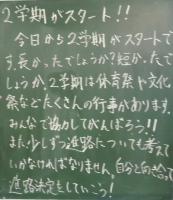 2学期がスタート!!
今日から2学期がスタートで
す。長かったでしょうか?短かったで
しょうか。2学期は体育祭や文化
祭などたくさんの行事があります。
みんなで協力してがんばろう!!
また、少しずつ進路についても考えて
いかなければなりません。自分と向き合って
進路決定をしていこう!